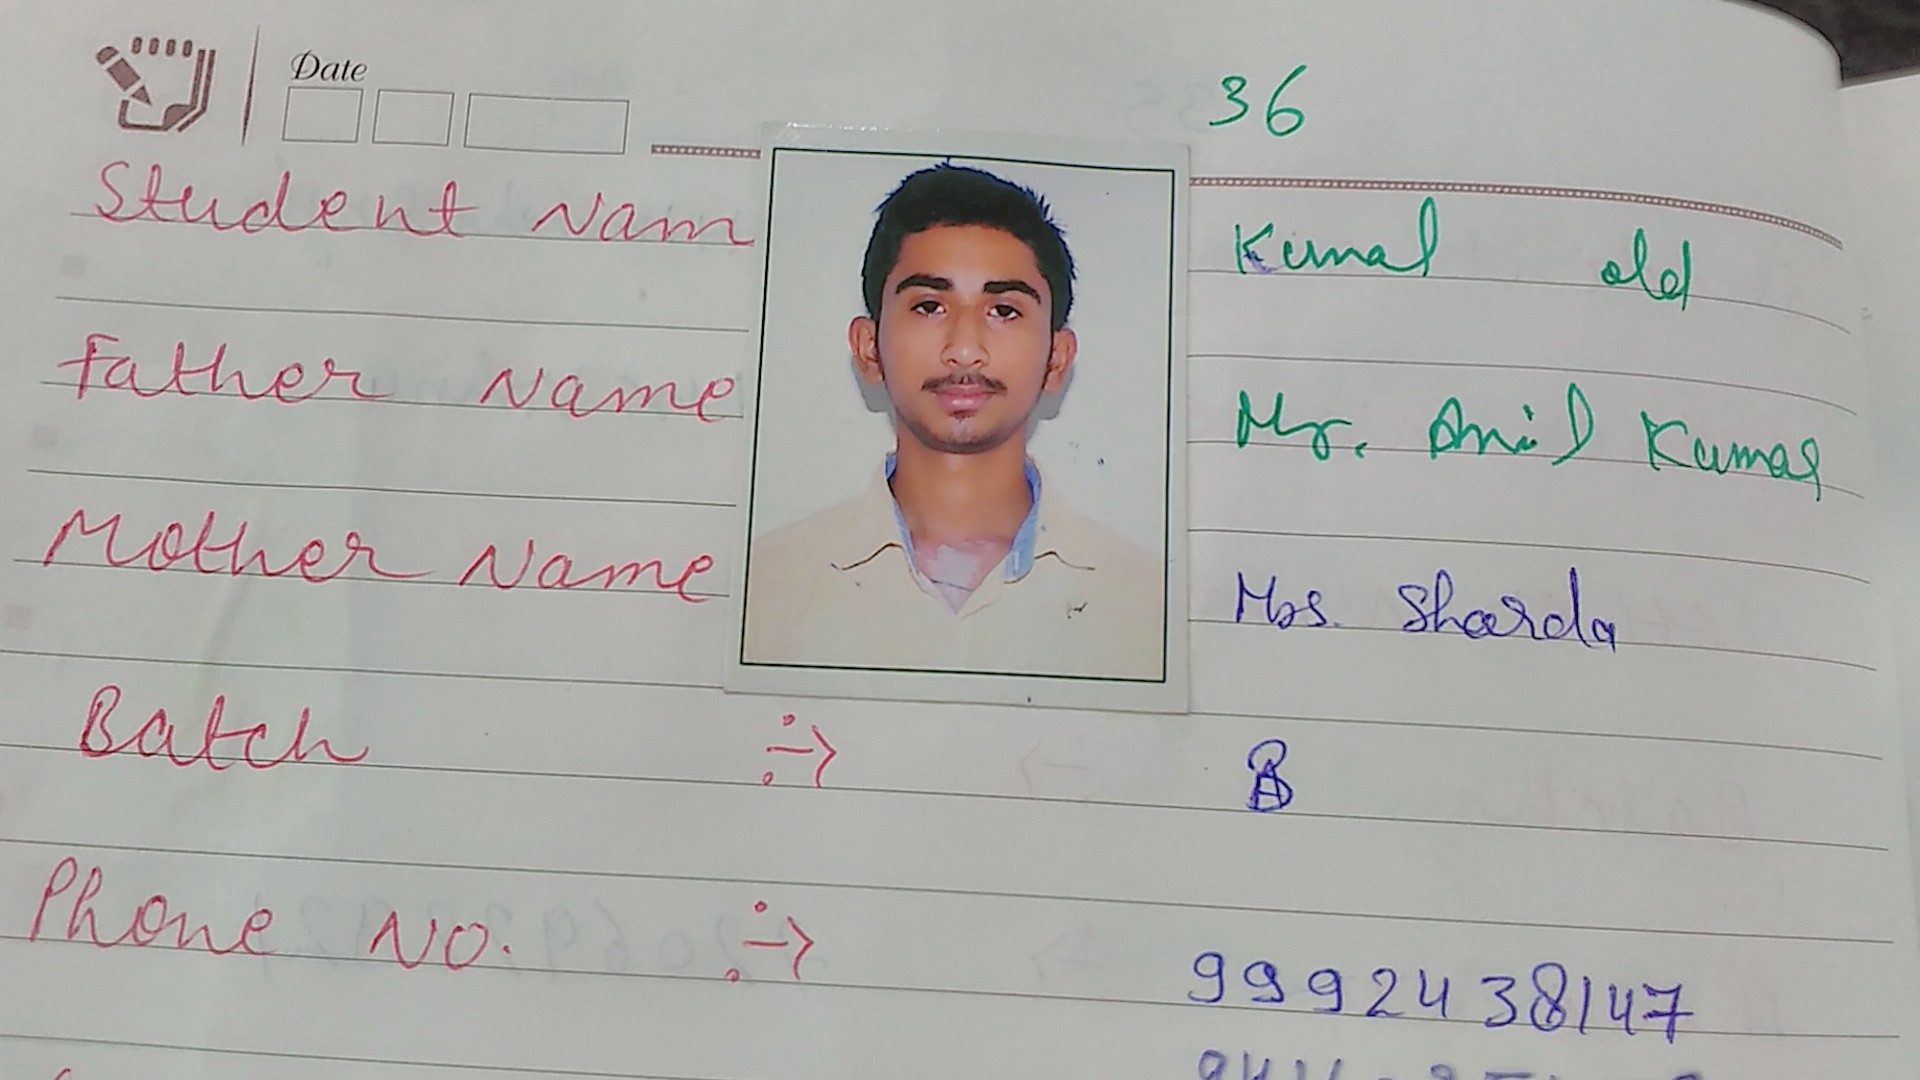 Date
36
Student Nam Kumal old
Father Name Mr. Anil Kumar
Mother Name Mrs. Sharda
Batch ÷> B
Phone No. ÷> 9992438147